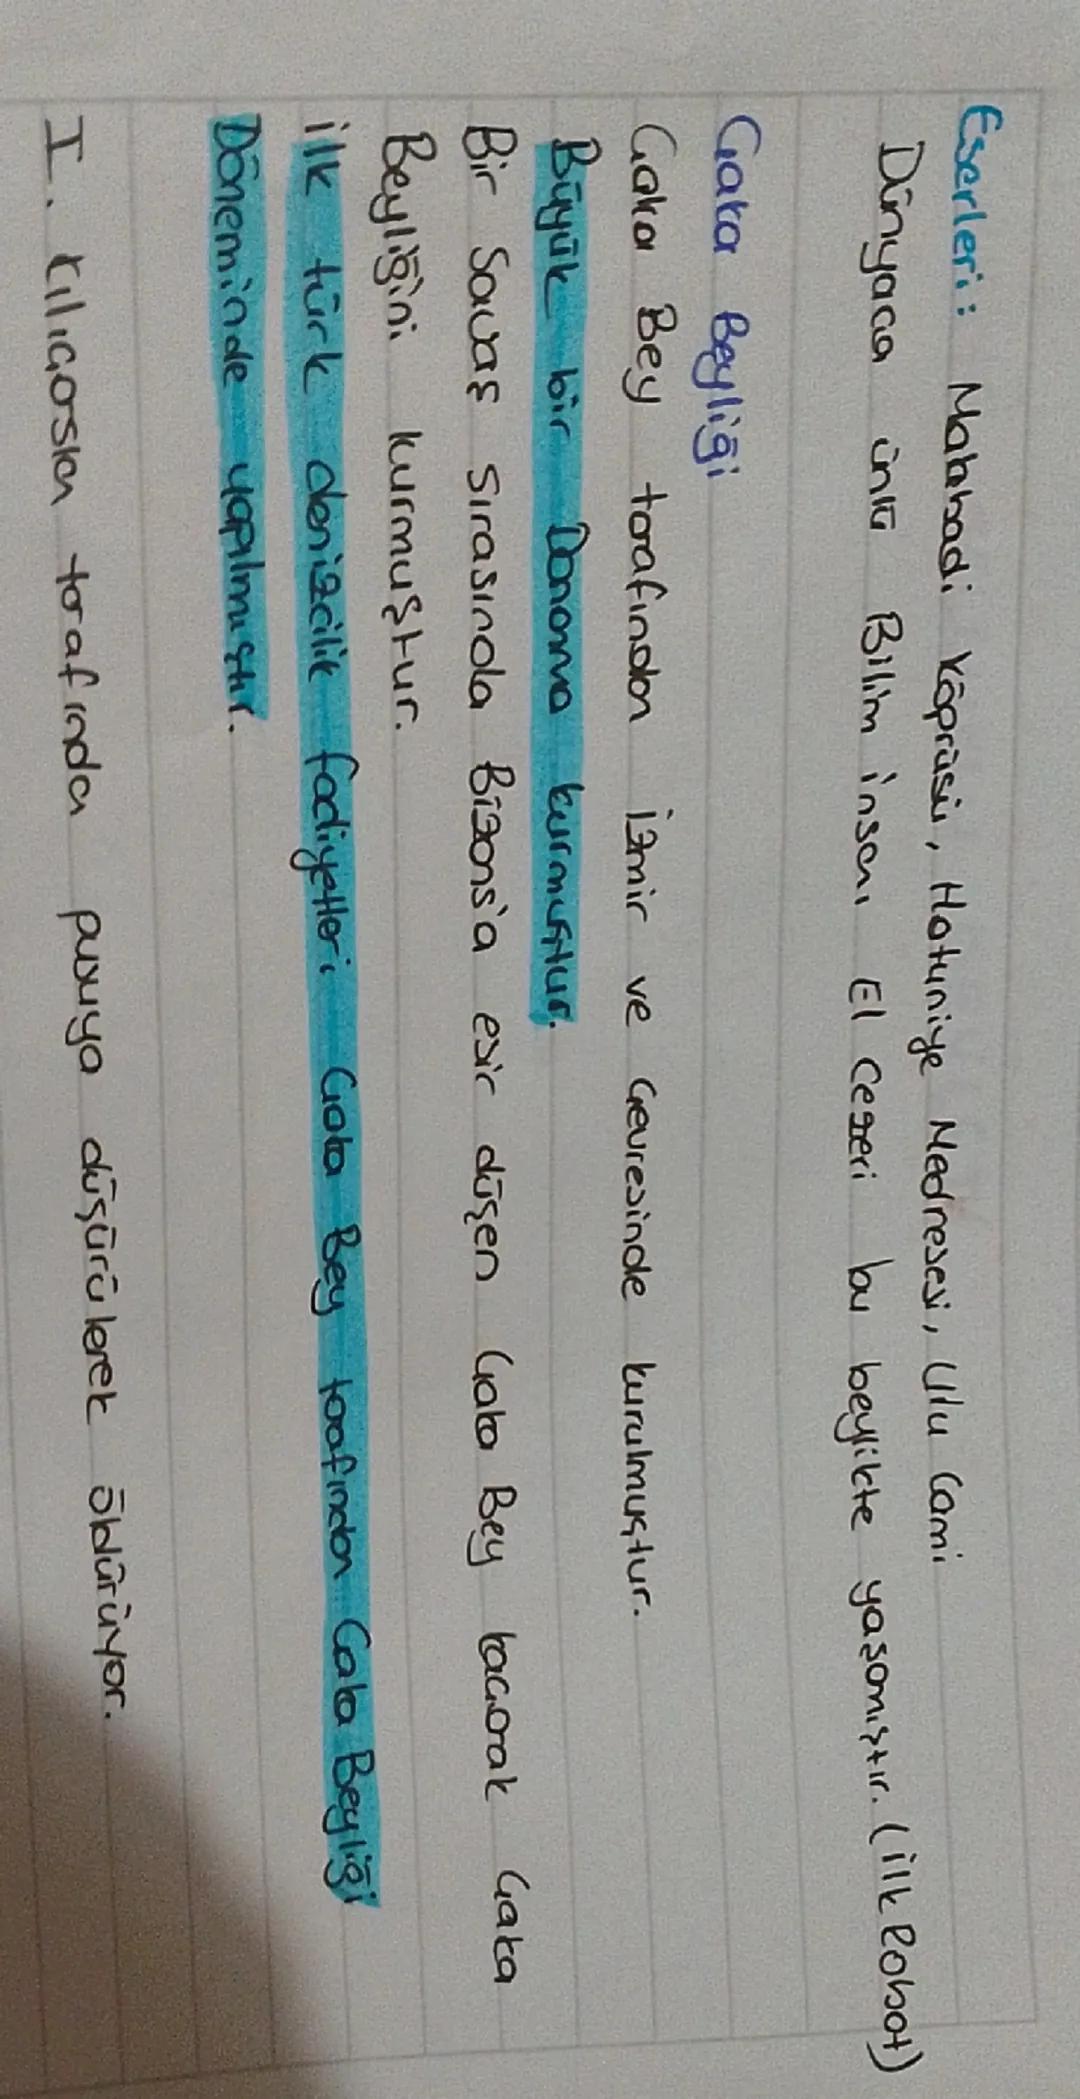 Eserleri: Malabadi Köprüsü, Hatuniye Medresesi, Ulu Cami
Dünyaca ünlü Bilim insanı El Cezeri bu beylikte yaşamıştır. (ilk Robot)
Çaka Beyliği
Çaka Bey tarafından İzmir ve Çevresinde kurulmuştur.
Büyük bir Donanma kurmuştur.
Bir Savaş sırasında Bizans'a esir düşen Çaka Bey kaçarak Çaka
Beyliğini kurmuştur.
ilk türk denizcilik faaliyetleri Çaka Bey tarafından Çaka Beyliği
Döneminde yapılmıştır.
I. Kılıçarslan tarafından pusuya düşürülerek öldürülüyor.